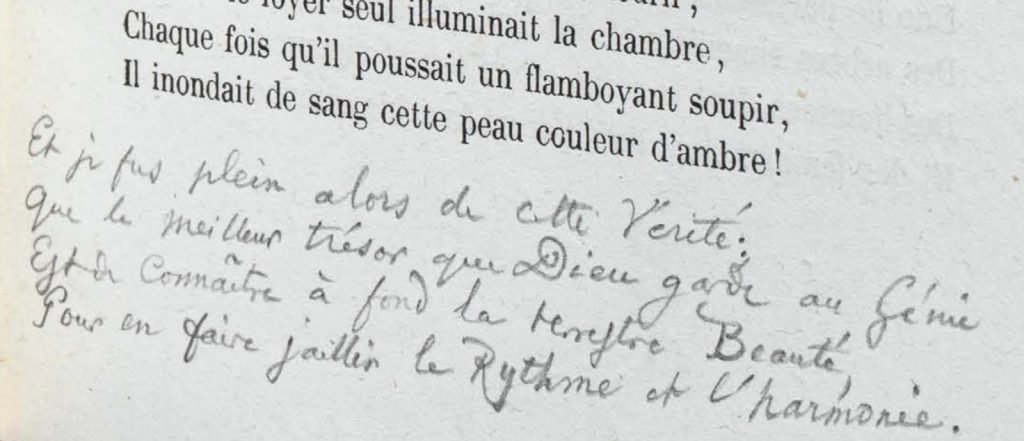 foyer seul illuminait la chambre,
Chaque fois qu'il poussait un flamboyant soupir,
Il inondait de sang cette peau couleur d'ambre !
Et je fus plein alors de cette Vérité:
Que le meilleur trésor que Dieu garde au Génie
Est de Connaître à fond la terrestre Beauté,
Pour en faire jaillir le Rythme et l'harmonie.